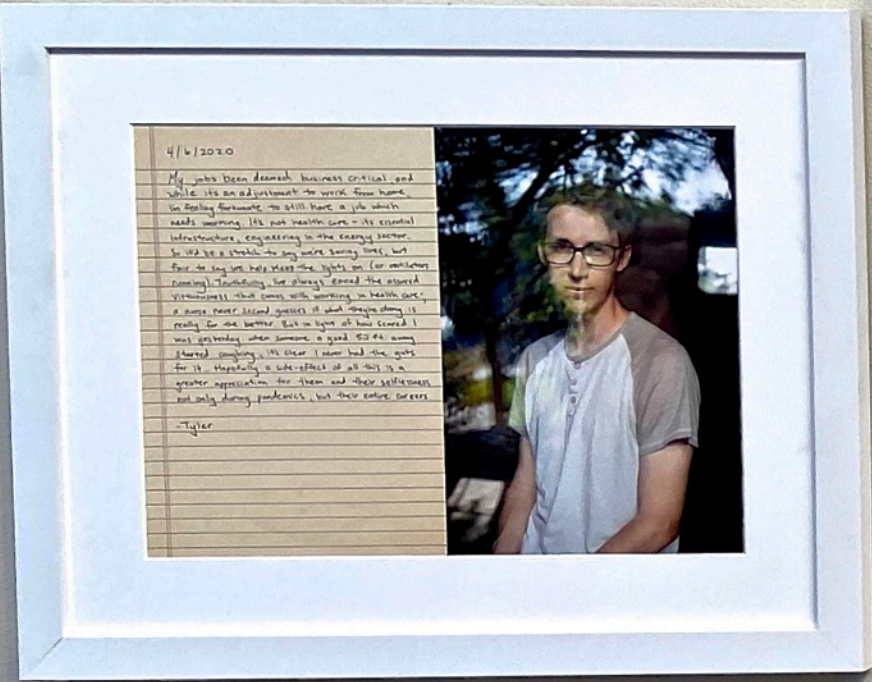 4/6/2020
My jobs been deemed business critical and
while its an adjustment to work from home,
im feeling fortunate to still have a job which
needs working. Its not health care - its essential
infrastructure, engineering in the energy sector.
So itd be a stretch to say were saving lives, but
fair to say we help keep the lights on (or ventilators
running). Truthfully, ive always envied the assured
virtuousness that comes with working in health care;
a nurse never second guesses if what theyre doing is
really for the better. But in light of how scared I
was yesterday when someone a good 50 ft away
started coughing, its clear I never had the guts
for it. Hopefully a side-effect of all this is a
greater appreciation for them and their selflessness
not only during pandemics, but their entire careers
-Tyler